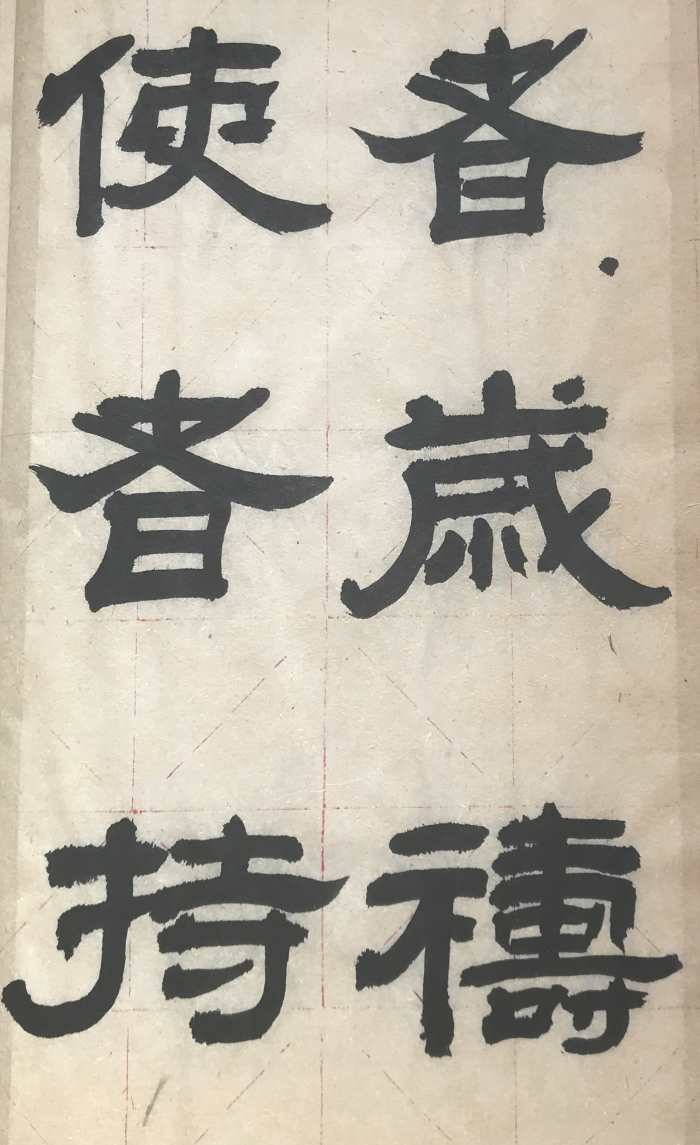 者歲禱
使者持